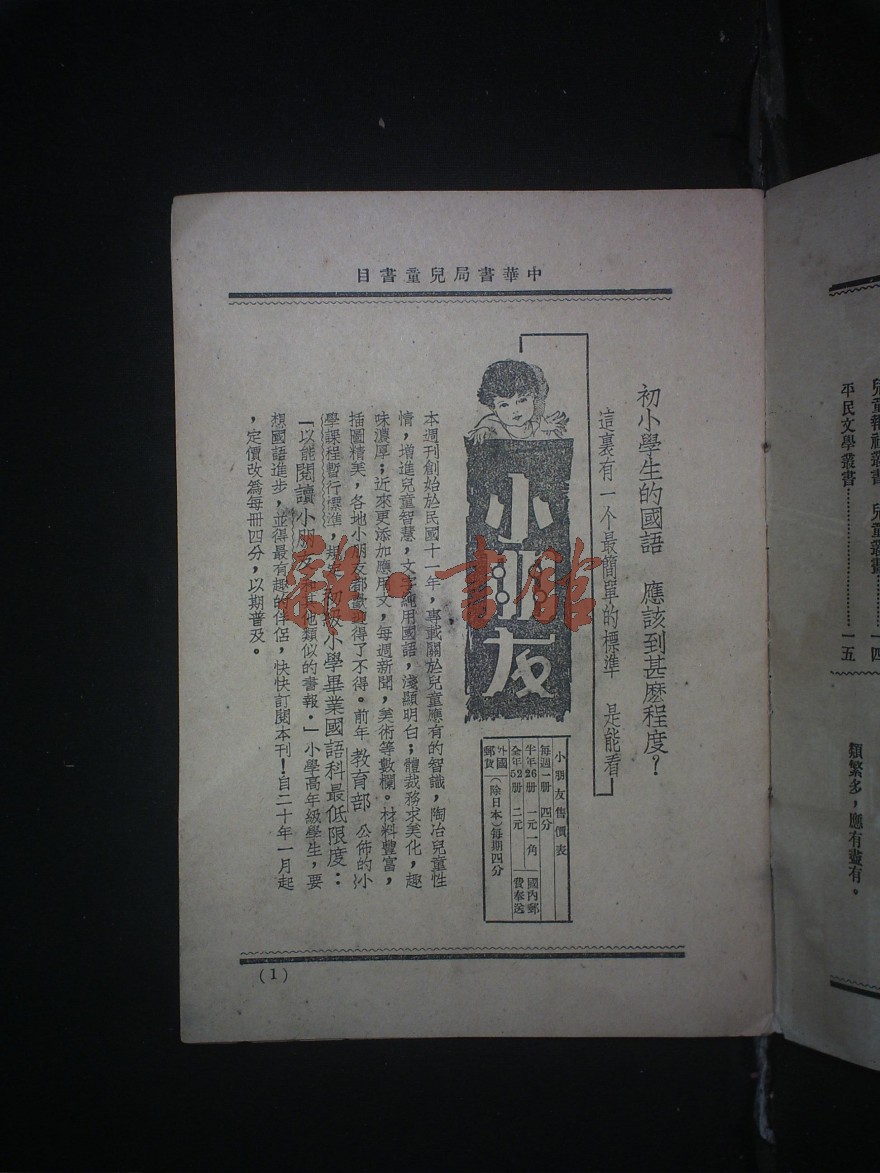 兒童叢書…………一四
平民文學叢書…………一五
類繁多,應有盡有。
中華書局兒童書目
初小學生的國語 應該到甚麼程度?
這裏有一个最簡單的標準 是能看
小朋友
小朋友售價表
每週一册 四分
半年26册 一元一角 國內郵
全年52册 二元 費奉送
外國郵費 (除日本)每期四分
本週刊創始於民國十一年,專載關於兒童應有的智識,陶冶兒童性
情,增進兒童智慧,文字純用國語,淺顯明白;體裁務求美化,趣
味濃厚;近來更添加應用文,每週新聞,美術等數欄。材料豐富,
插圖精美,各地小朋友都歡迎得了不得。前年 教育部 公佈的小
學課程暫行標準,規定初級小學畢業國語科最低限度:
「以能閱讀小朋友和其他類似的書報。」小學高年級學生,要
想國語進步,並得最有趣的伴侶,快快訂閱本刊!自二十年一月起
,定價改為每冊四分,以期普及。
(1)
雜·書館